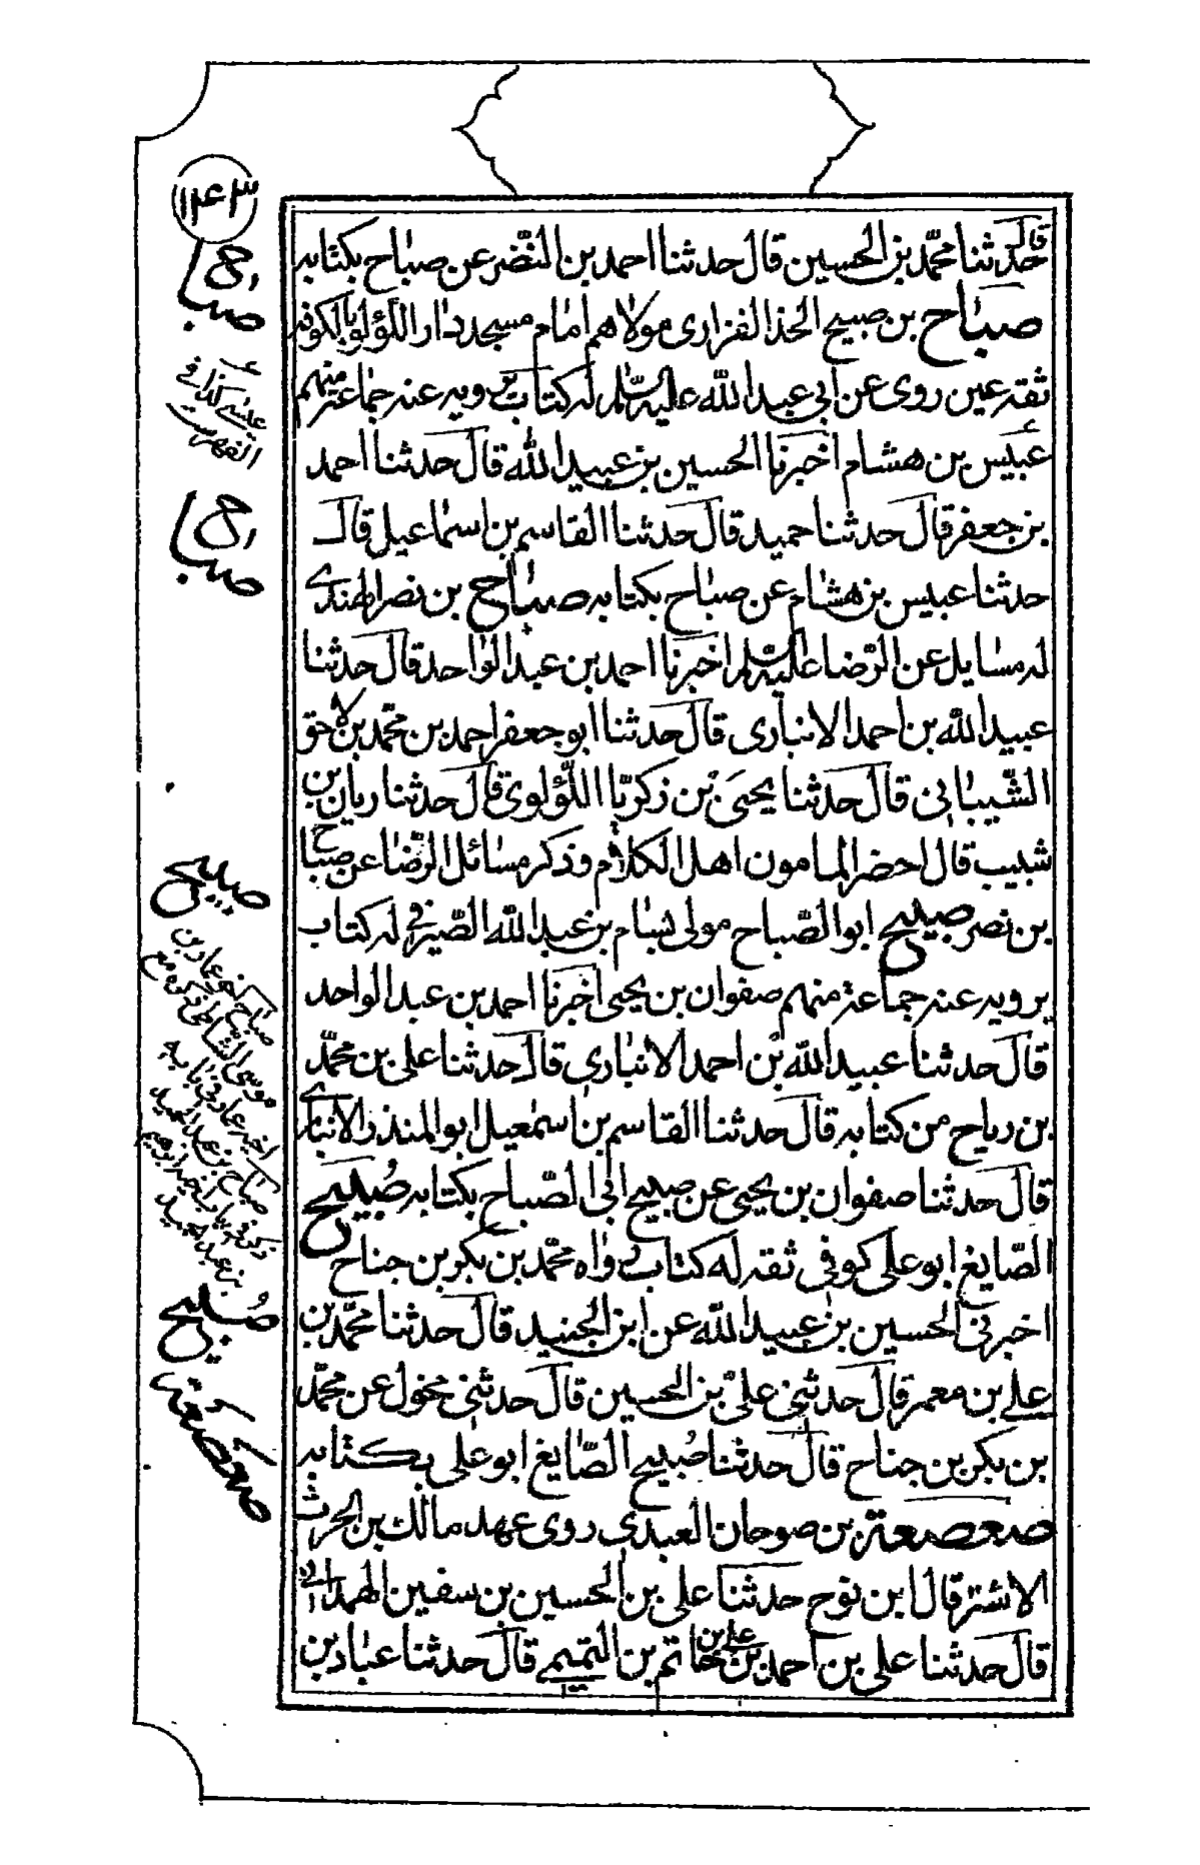 ١٤٣
قال حدثنا محمّد بن الحسين قال حدثنا احمد بن النّضر عن صباح بكتابه
صباح بن صبيح الحذا الفزارى مولاهم امام مسجد دار اللؤلؤ بالكوفه
ثقة عين روى عن ابى عبدالله عليه السلم له كتاب يرويه عنه جماعة منهم
عبيس بن هشام اخبرنا الحسين بن عبيدالله قال حدثنا احمد
بن جعفر قال حدثنا حميد قال حدثنا القاسم بن اسماعيل قال
حدثنا عبيس بن هشام عن صباح بكتابه صباح بن نصر الهندى
له مسايل عن الرّضا عليه السلم اخبرنا احمد بن عبد الواحد قال حدثنا
عبيدالله بن احمد الانبارى قال حدثنا ابو جعفر احمد بن محمّد بن لاحق
الشّيبانى قال حدثنا يحيى بن زكريّا اللّؤلوى قال حدثنا ريان بن
شبيب قال احضر المامون اهل الكلام وذكر مسائل الرّضا عن صباح
بن نصر صبيح ابو الصّباح مولى بسّام بن عبدالله الصّيرفى له كتاب
يرويه عنه جماعة منهم صفوان بن يحيى اخبرنا احمد بن عبد الواحد
قال حدثنا عبيدالله بن احمد الانبارى قال حدثنا على بن محمّد
بن رياح من كتابه قال حدثنا القاسم بن اسمعيل ابو المنذر الانبارى
قال حدثنا صفوان بن يحيى عن صبيح ابى الصّباح بكتابه صُبيح
الصّايغ ابو على كوفى ثقه له كتاب رواه محمّد بن بكر بن جناح
اخبرنى الحسين بن عبيدالله عن ابن الجنيد قال حدثنا محمّد بن
على بن معمر قال حدثنى علىّ بن الحسين قال حدثنى مخول عن محمّد
بن بكر بن جناح قال حدثنا صُبيح الصّايغ ابو على بكتابه
صعصعة بن صوحان العبدى روى عهد مالك بن الحرث
الاشتر قال ابن نوح حدثنا على بن الحسين بن سفين الهمدانى
قال حدثنا على بن احمد بن على بن حاتم بن التميمى قال حدثنا عباد بن
صباح
الفهرست
صباح
صبيح
صباح
صباح بن عبد الحميد
بن عبد الحميد
صُبيح
صعصعة